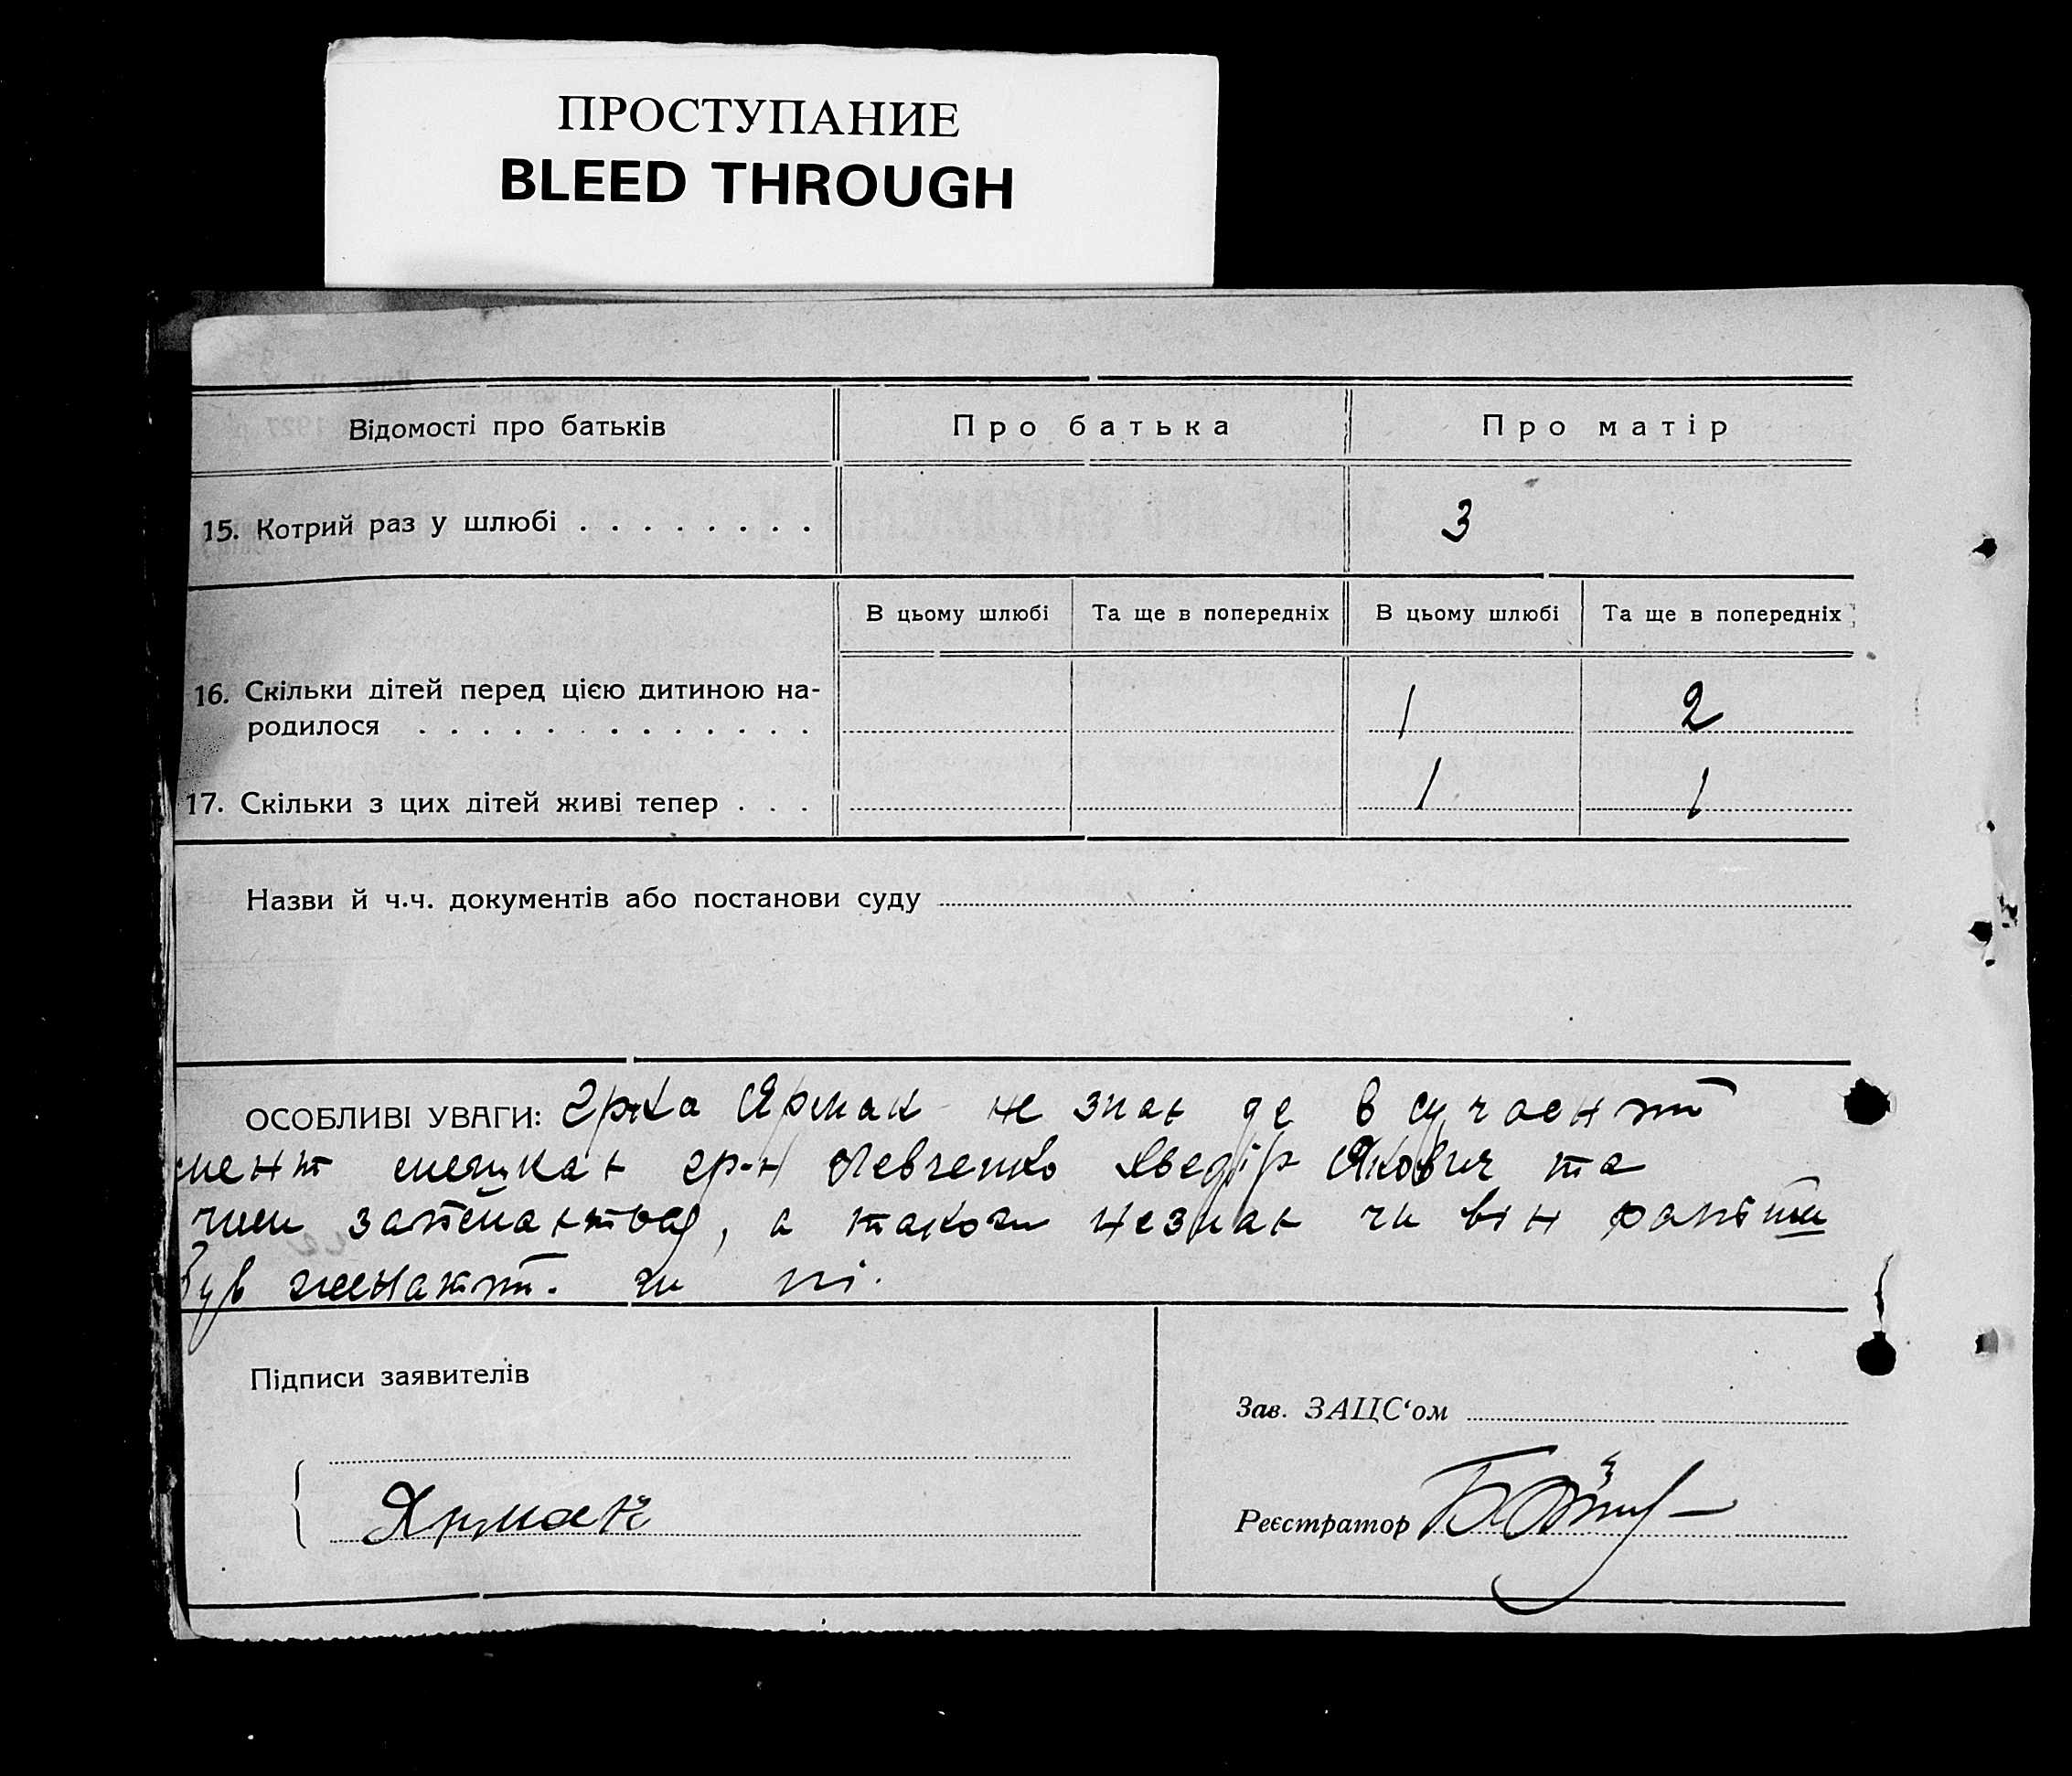 ПРОСТУПАНИЕ
BLEED THROUGH
Відомості про батьків
Про батька
Про матір
15. Котрий раз у шлюбі . . . . . . . .
3
В цьому шлюбі
Та ще в попередніх
В цьому шлюбі
Та ще в попередніх
16. Скільки дітей перед цією дитиною на-
родилося . . . . . . . . . . . . .
1
2
17. Скільки з цих дітей живі тепер . . .
1
1
Назви й ч.ч. документів або постанови суду
ОСОБЛИВІ УВАГИ: гр-ка Ярмак не знає де в сучасний
мент мешкає гр-н Левченко Хведір Якович та
чим займається, а також не знає чи він раніш
був чи ні.
Підписи заявителів
Зав. ЗАЦС‘ом
Ярмак
Реєстратор